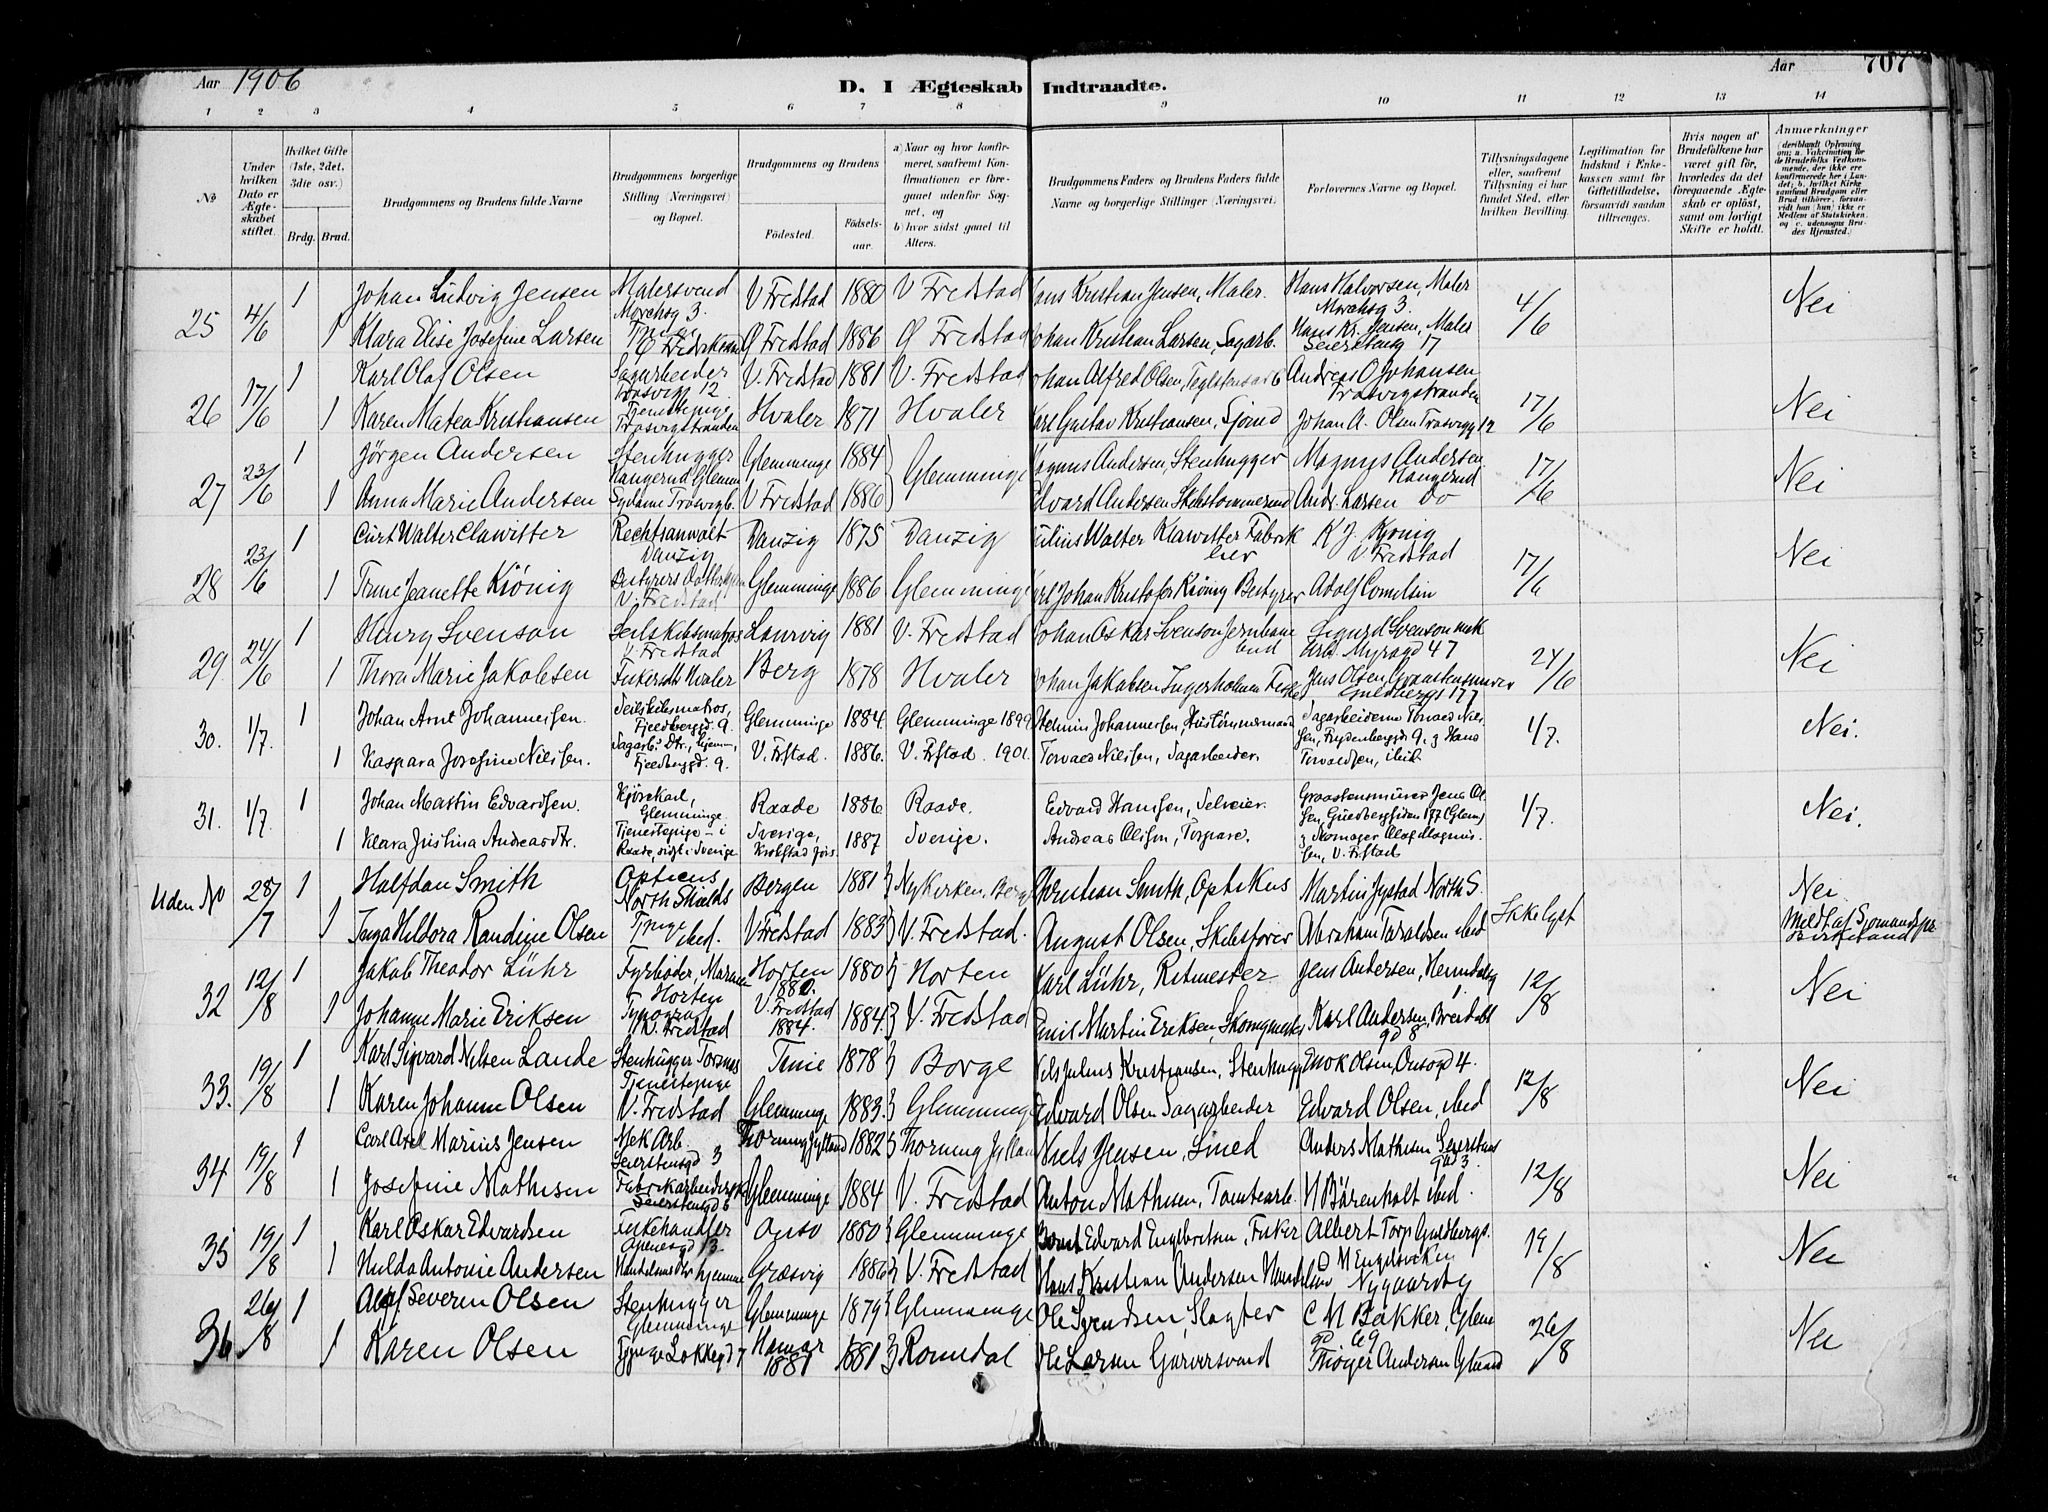 Aar 1906
D. I Ægteskab Indtraadte.
Aar
707
1 2 3 4 5 6 7 8 9 10 11 12 13 14
No
Under hvilken Dato er Ægteskabet stiftet.
Hvilket Gifte (1ste, 2det, 3die osv.)
Brdg. Brud.
Brudgommens og Brudens fulde Navne
Brudgommens borgerlige Stilling (Næringsvei) og Bopæl.
Brudgommens og Brudens
Fødested.
Fødselsaar.
a) Naar og hvor konfirmeret, saafremt Konfirmationen er foregaaet udenfor Sognet, og
b) hvor sidst gaaet til Alters.
Brudgommens Faders og Brudens Faders fulde Navne og borgerlige Stillinger (Næringsvei)
Forlovernes Navne og Bopæl.
Tillysningsdagene eller, saafremt Tillysning ei har fundet Sted, efter hvilken Bevilling.
Legitimation for Indskud i Enkekassen samt for Giftetilladelse, forsaavidt saadan tiltrænges.
Hvis nogen af Brudefolkene har været gift før, hvorledes da det foregaaende Ægteskab er opløst, samt om lovligt Skifte er holdt.
Anmærkninger
25 4/6 1 Johan Ludvig Jensen Malersvend Morchsg 3. V Fredstad 1880 V Fredstad Hans Kristian Jensen, Maler. Hans Halvorsen, Maler Morchsg 3. 4/6 Nei
1 Klara Elise Josefine Larsen Ø Fredstad 1886 Ø Fredstad Johan Kristian Larsen, Sagarb. Hans Kr. Jensen, Maler Seierstensg 17
26 17/6 1 Karl Olaf Olsen Sagarbeider Trosvigg 12. V. Fredstad 1881 V. Fredstad Johan Alfred Olsen, Teglstensarb Andreas O Johansen Trosvigstranden 17/6 Nei
1 Karen Matea Kristiansen Tjenestepige Trosvigstranden Hvaler 1871 Hvaler Karl Gustav Kristiansen, Sjømd Johan A. Olsen Trosvigg 12
27 23/6 1 Jörgen Andersen Stenhugger Haugerud Glemm Glemminge 1884 Glemminge Magnus Andersen, Stenhugger Magnus Andersen Haugerud 17/6 Nei
1 Anna Marie Andersen Sydame Trosvigb. V Fredstad 1886 Edvard Andersen Skibstømmermd Andr. Larsen Do
28 23/6 1 Curt Walter Clawitter Rechtsanwalt Danzig Danzig 1875 Danzig Julius Walter Klawitter Fabrik eier K J. Kiønig V. Fredstad 17/6 Nei
1 Trine Jeanette Kiönig V. Fredstad Glemminge 1886 Glemminge Karl Johan Kristofer Kiønig Bestyrer Adolf Cornelsin
29 24/6 1 Henry Svenson Seilskibsmatros V. Fredstad Laurvig 1881 V. Fredstad Johan Oskar Svenson Jernbane bud Sigurd Svenson mek Arb. Myragd 47 24/6 Nei
1 Thora Marie Jakobsen Fiskersdtr Hvaler Berg 1878 Hvaler Johan Jakobsen Ingerholmen Fisker Jens Olsen Graastensmurer Guldbergs 177
30. 1/7. 1 Johan Arnt Johannessen. Seilskibsmatros, Fjeldbergd. 9. Glemminge 1884. Glemminge 1899 Helmin Johannessen, Hustømmermand Sagarbeiderne Torvald Nilssen, Frydenbergd 9. og Hans Torvaldsen, ibid 1/7. Nei.
1 Kaspara Josefine Nilssen. Sagarb. Dtr., hjem., Fjeldbergd. 9. V. Fstad. 1886. V. Fstad. 1901. Torvald Nilssen, Sagarbeider.
31. 1/7. 1 Johan Martin Edvardsen. Kjørekarl, Glemminge. Raade 1886 Raade. Edvard Hanssen, Selveier. Graastensmurer Jens Olsen, Guldbergsiden 177 (Glem) og Skomager Olaf Magnussen, V. Fstad 1/7. Nei.
1 Klara Justina Andreasdtr. Tjenestepige i Raade, sidst i Sverige Sverige, Krokstad 1887 Sverige. Andreas Olsson, Torpare.
Uden No 28/7 1 Halfdan Smith Opticus North Shields Bergen 1881 Nykirken, Berg Christian Smith, Optikus Martin Jystad North S. Ikke lyst Nei
1 Inga Hildora Randine Olsen Tpige ibid. V. Fredstad 1883 V. Fredstad. August Olsen, Skibsfører Abraham Taraldsen ibid Meldt af Sjømandspr. Birkeland
32 12/8 1 Jakob Theodor Lühr Fyrbøder, Marinen Horten Horten 1880. 1880 Horten Karl Lühr, Ritmester Jens Andersen, Henndalsg 1. 12/8 Nei
1 Johanne Marie Eriksen V. Fredstad V. Fredstad 1884. 1884. V. Fredstad Emil Martin Eriksen, Skomgmester Karl Andersen, Breidabl gd 8
33. 19/8 1 Karl Sigvard Nilsen Lande Stenhugger Torsnes Tune 1878 Borge Nils Julius Kristiansen, Stenhugg Enok Olsen, Onsøgd 4. 12/8 Nei
1 Karen Johanne Olsen Tjenestepige V. Fredstad Glemminge 1883. Glemminge Edvard Olsen Sagarbeider Edvard Olsen, ibid
34 19/8 1 Carl Axel Marius Jensen Mek Arb. Seierstensgd 3 Thorning Jylland 1882 Thorning Jylland Niels Jensen, Smed Anders Mathisen Seierstens gad 3. 12/8 Nei
1 Josefine Mathisen Fabrikarbeiderske Seierstensgd 6 Glemminge 1884 V. Fredstad Anton Mathisen, Tomtearb. H Bärenholt ibid.
35 19/8 1 Karl Oskar Edvardsen Fiskehandler Onsø 1880 Glemminge Bernt Edvard Engebretsen, Fisker Albert Torp Guldbergs. 19/8 Nei
1 Hulda Antonie Andersen hjemme Græsvig 1886 V. Fredstad Hans Kristian Andersen M Engelsviken Nygaardsg
36 26/8 1 Olaf Severin Olsen Stenhugger Glemminge Glemminge 1879 Glemminge Ole Svendsen, Slagter C M Bakker, Glem gd 69 26/8 Nei
1 Karen Olsen Tpige Løkkegd 7 Hamar 1881 1881 Romedal Ole Larsen Garversvend Thøger Andersen